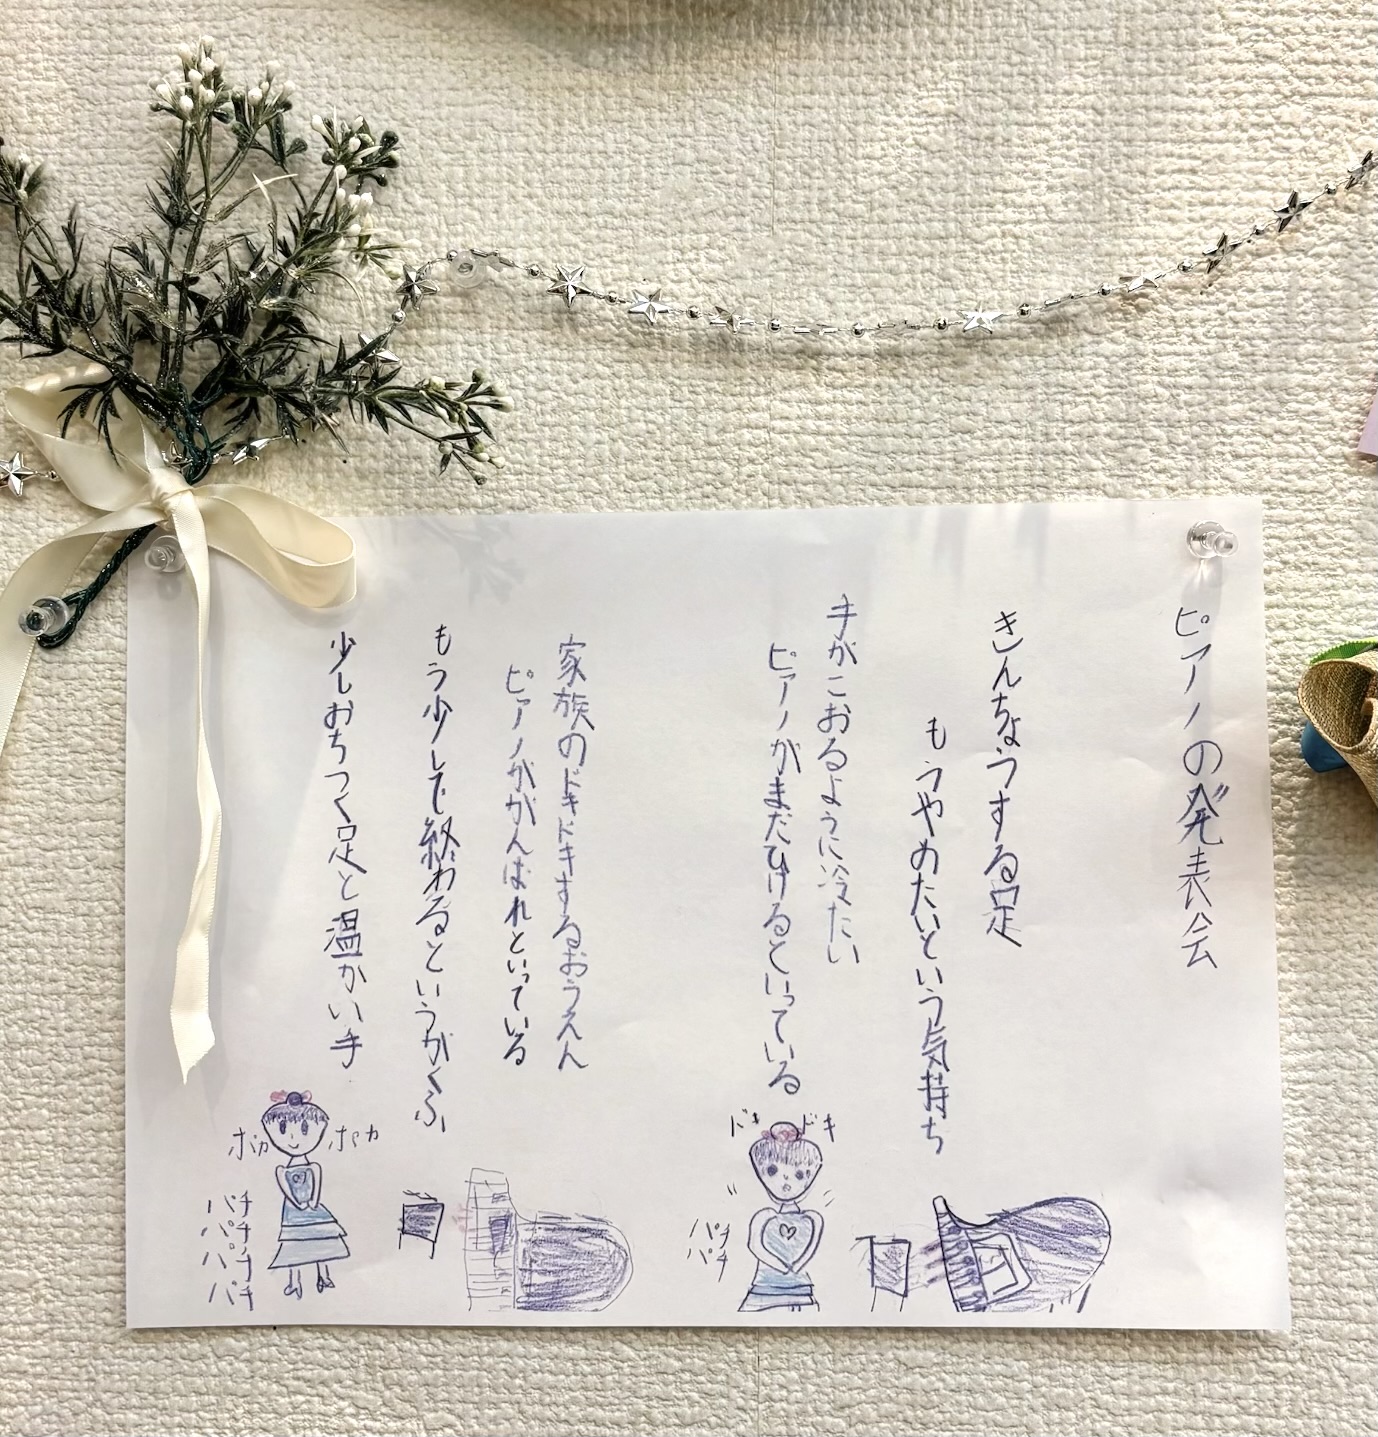 ピアノの発表会
きんちょうする足
もうやめたいという気持ち
手がこおるように冷たい
ピアノがまだひけるといっている
家族のドキドキするおうえん
ピアノががんばれといっている
もう少しで終わるというがくふ
少しおちつく足と温かい手
ドキ ドキ
パチ
パチ
ポカ ポカ
パチ
パチ
パチ
パチ